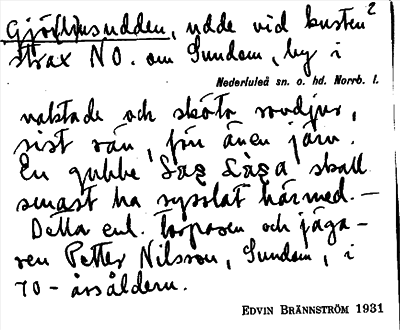 Gjö(l)nsudden, udde vid kusten 2
strax NO. om Sundom, by i
Nederluleå sn. o. hd. Norrb. l.
vaktade och sköto rovdjur,
sist rän, för även järv.
En gubbe skall
senast ha sysslat härmed. –
Detta enl. torparen och jäga-
ren Petter Nilsson, Sundom, i
70-årsåldern.
EDVIN BRÄNNSTRÖM 1931